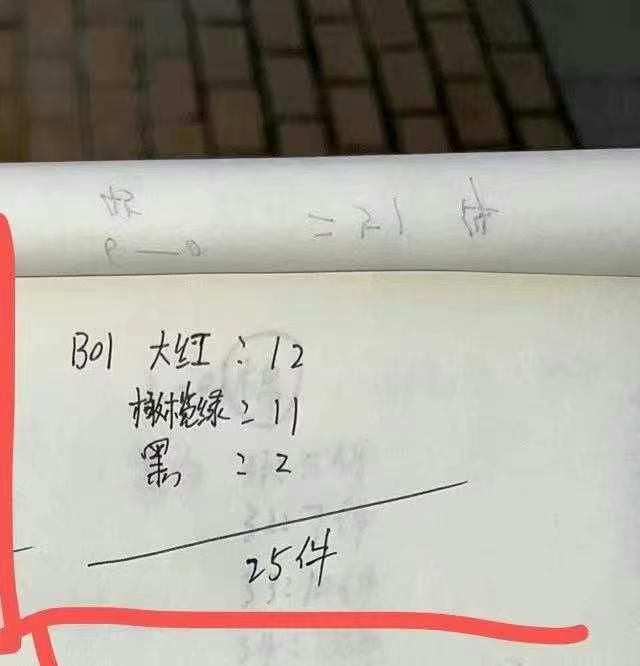 B01 大红：12
橄榄绿：11
黑：2
25件